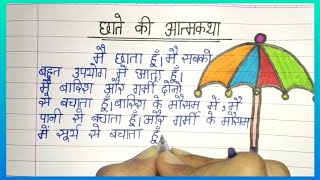 छाते की आत्मकथा
मैं छाता हूँ। मैं सबको
बहुत उपयोग में आता हूँ।
मैं बारिश और गर्मी दोनों
से बचाता हूँ। बारिश के मौसम में, मैं
पानी से बचाता हूँ। और गर्मी के मौसम
में सूर्य से बचाता हूँ